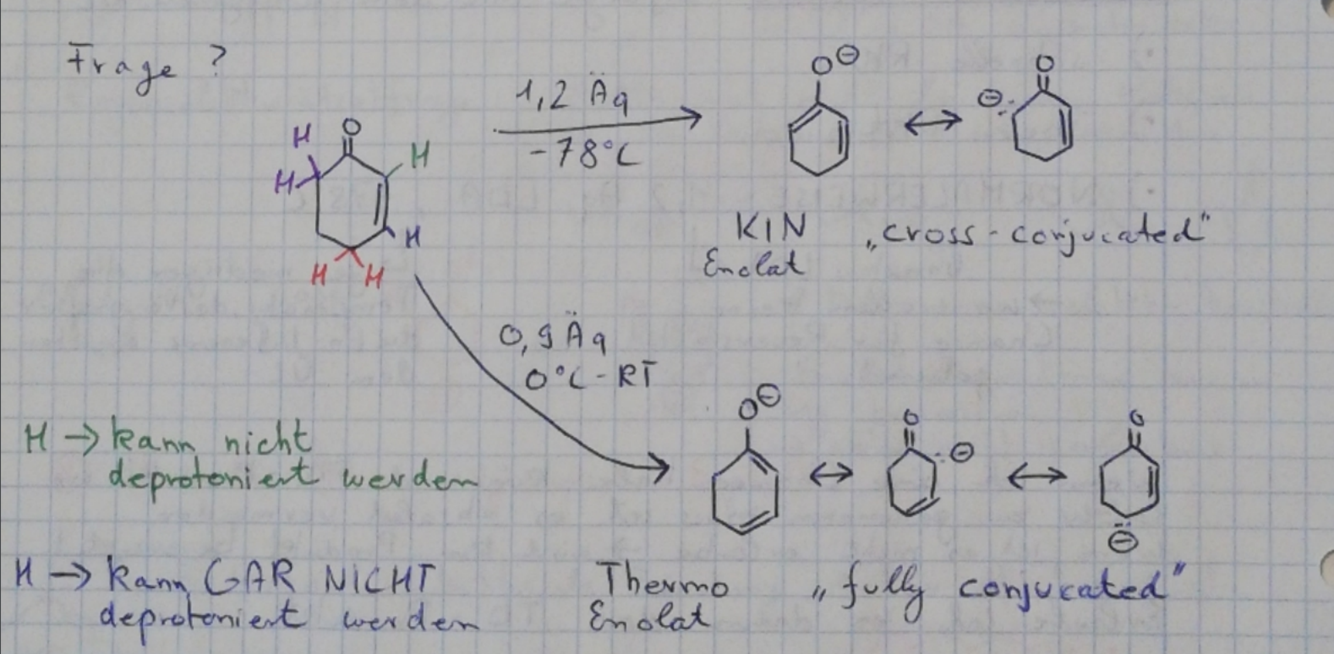 Frage ?
1,2 Äq
-78°C
O⊖
O
⊖
O
H
H
H
H
H H
KIN
Enolat
„cross-conjucated"
0,9 Äq
0°C - RT
H → kann nicht
deprotoniert werden
O⊖
O
⊖
O
⊖
H → kann GAR NICHT
deprotoniert werden
Thermo
Enolat
„fully conjucated"